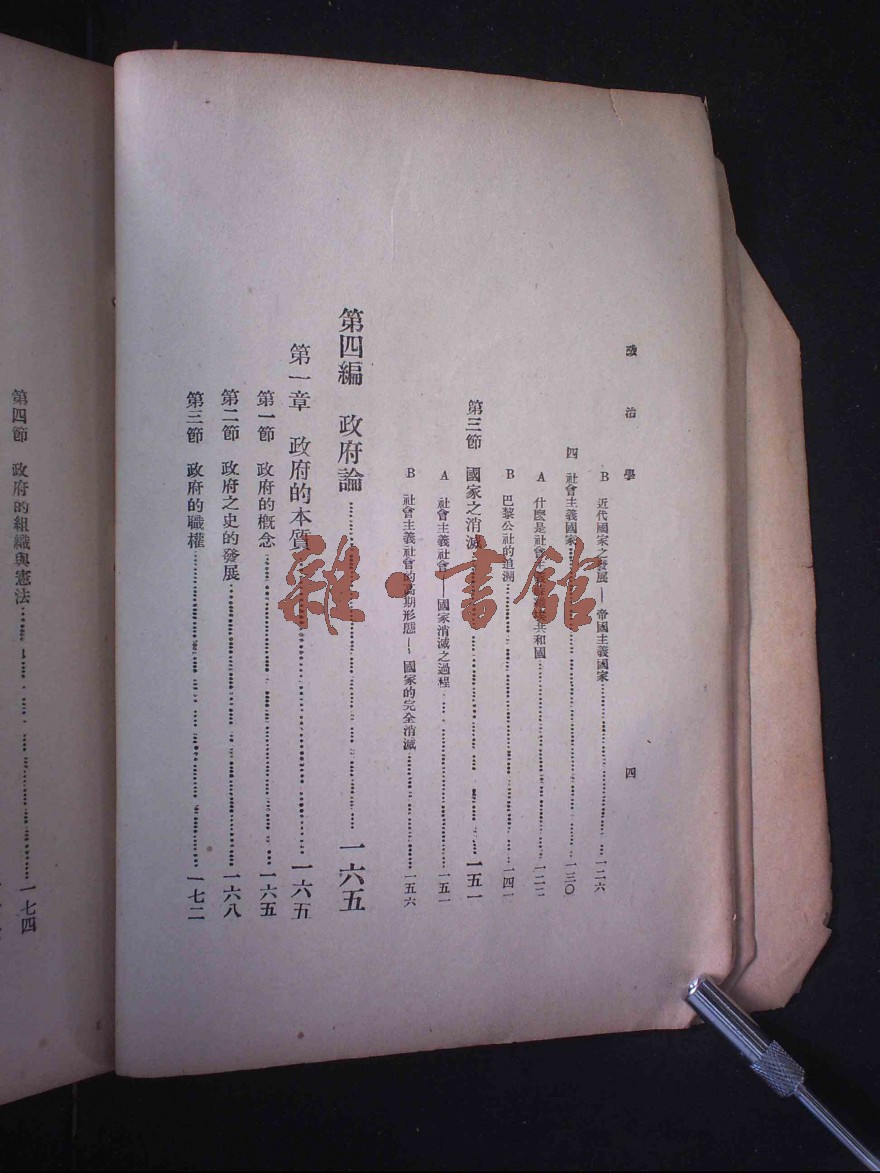 政治學
四
B 近代國家之發展——帝國主義國家……一二六
四 社會主義國家……一三〇
A 什麼是社會主義 共和國……一三三
B 巴黎公社的追溯……一四一
第三節 國家之消滅……一五一
A 社會主義社會——國家消滅之過程……一五一
B 社會主義社會的高期形態——國家的完全消滅……一五六
第四編 政府論……一六五
第一章 政府的本質……一六五
第一節 政府的概念……一六五
第二節 政府之史的發展……一六八
第三節 政府的職權……一七二
第四節 政府的組織與憲法……一七四
雜·書館